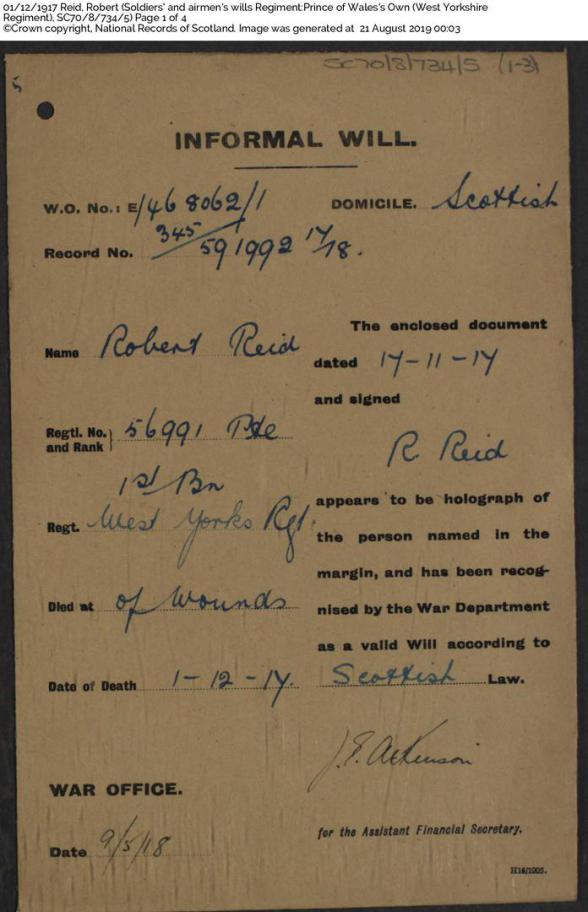 01/12/1917 Reid, Robert (Soldiers' and airmen's wills Regiment:Prince of Wales's Own (West Yorkshire
Regiment), SC70/8/734/5) Page 1 of 4
©Crown copyright, National Records of Scotland. Image was generated at 21 August 2019 00:03
SC70/8/734/5 (1-3)
5
INFORMAL WILL.
W.O. No.: E/468062/1
DOMICILE. Scottish
345
Record No. 591992 17/18.
Name Robert Reid
The enclosed document
dated 17-11-17
and signed
R Reid
Regtl. No. and Rank } 56991 Pte
1st Bn
Regt. West Yorks Rgt.
Died at of Wounds
Date of Death 1-12-17.
appears to be holograph of
the person named in the
margin, and has been recog-
nised by the War Department
as a valid Will according to
Scottish Law.
J.E. Atkinson
for the Assistant Financial Secretary.
WAR OFFICE.
Date 9/5/18
H16/1905.